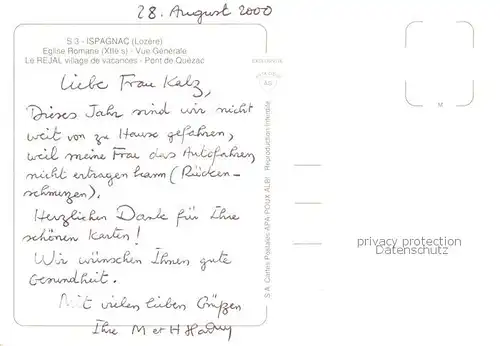 28. August 2000
S 3 - ISPAGNAC (Lozère)
Eglise Romane (XIIe s) - Vue Générale
Le REJAL village de vacances - Pont de Quézac
Liebe Frau Kalz,
Dieses Jahr sind wir nicht
weit von zu Hause gefahren,
weil meine Frau das Autofahren
nicht ertragen kann (Rücken-
schmerzen).
Herzlichen Dank für Ihre
schönen Karten!
Wir wünschen Ihnen gute
Gesundheit.
Mit vielen lieben Grüßen
Ihre M et H
S.A. Cartes Postales APA-POUX ALBI - Reproduction Interdite
M
privacy protection
Datenschutz